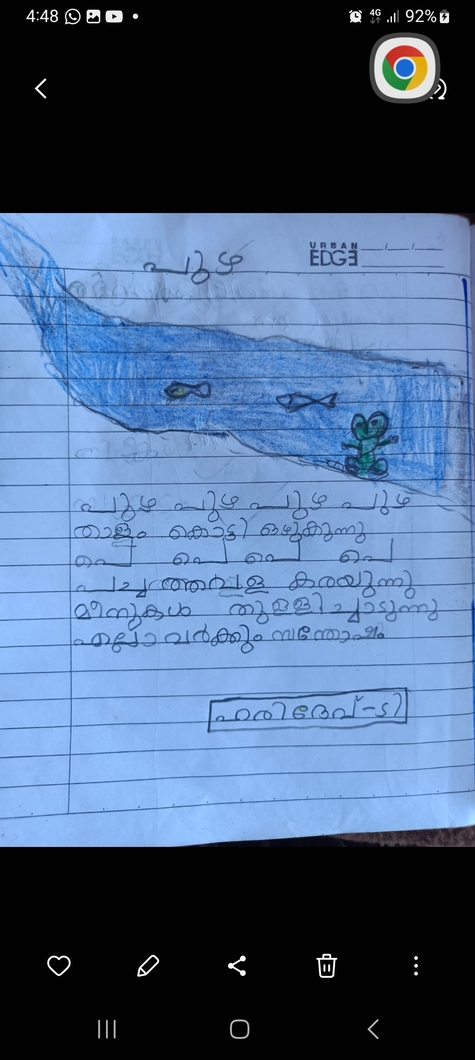 4:48
4G
92%
URBAN
EDGE
പുഴ
പുഴ പുഴ പുഴ പുഴ
താളം കൊട്ടി ഒഴുകുന്നു
പെ പെ പെ പെ
പച്ചത്തവള കരയുന്നു
മീനുകൾ തുള്ളി ച്ചാടുന്നു
എല്ലാവർക്കും സന്തോഷം
ഹരിദേവ്-ടി